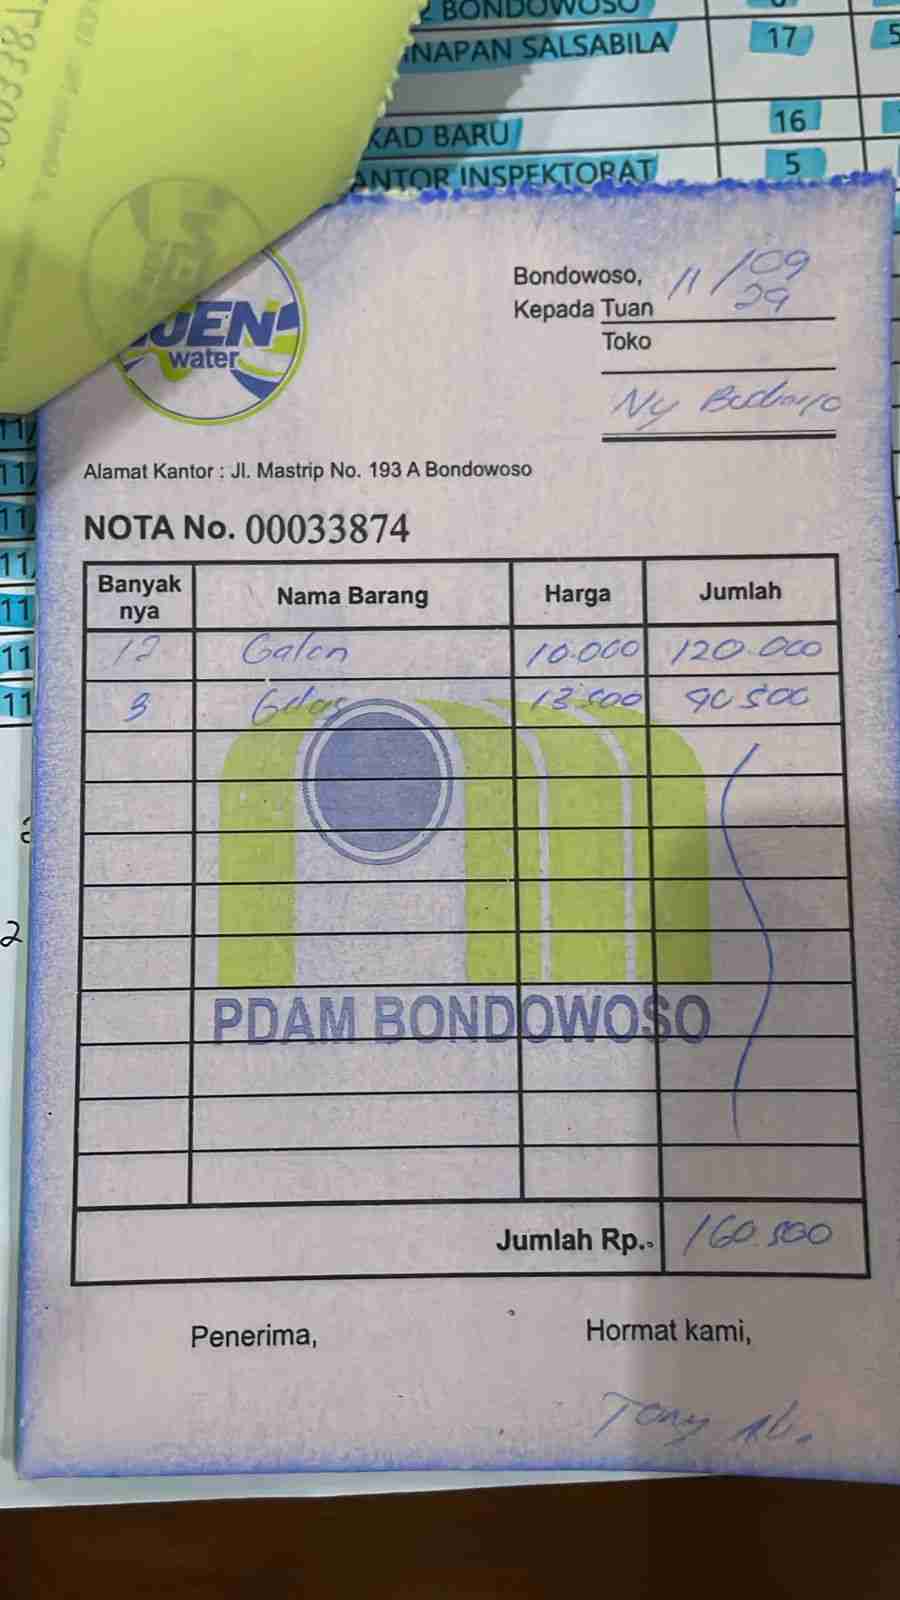 BONDOWOSO
NAPAN SALSABILA 17
KAD BARU 16
ANTOR INSPEKTORAT 5
Bondowoso, 11/09
Kepada Tuan
Toko
Ny
JEN
water
Alamat Kantor : Jl. Mastrip No. 193 A Bondowoso
NOTA No. 00033874
Banyak nya Nama Barang Harga Jumlah
12 Galon 10.000 120.000
3 Gelas 13.500 40.500
PDAM BONDOWOSO
Jumlah Rp. 160.500
Penerima, Hormat kami,
Tony